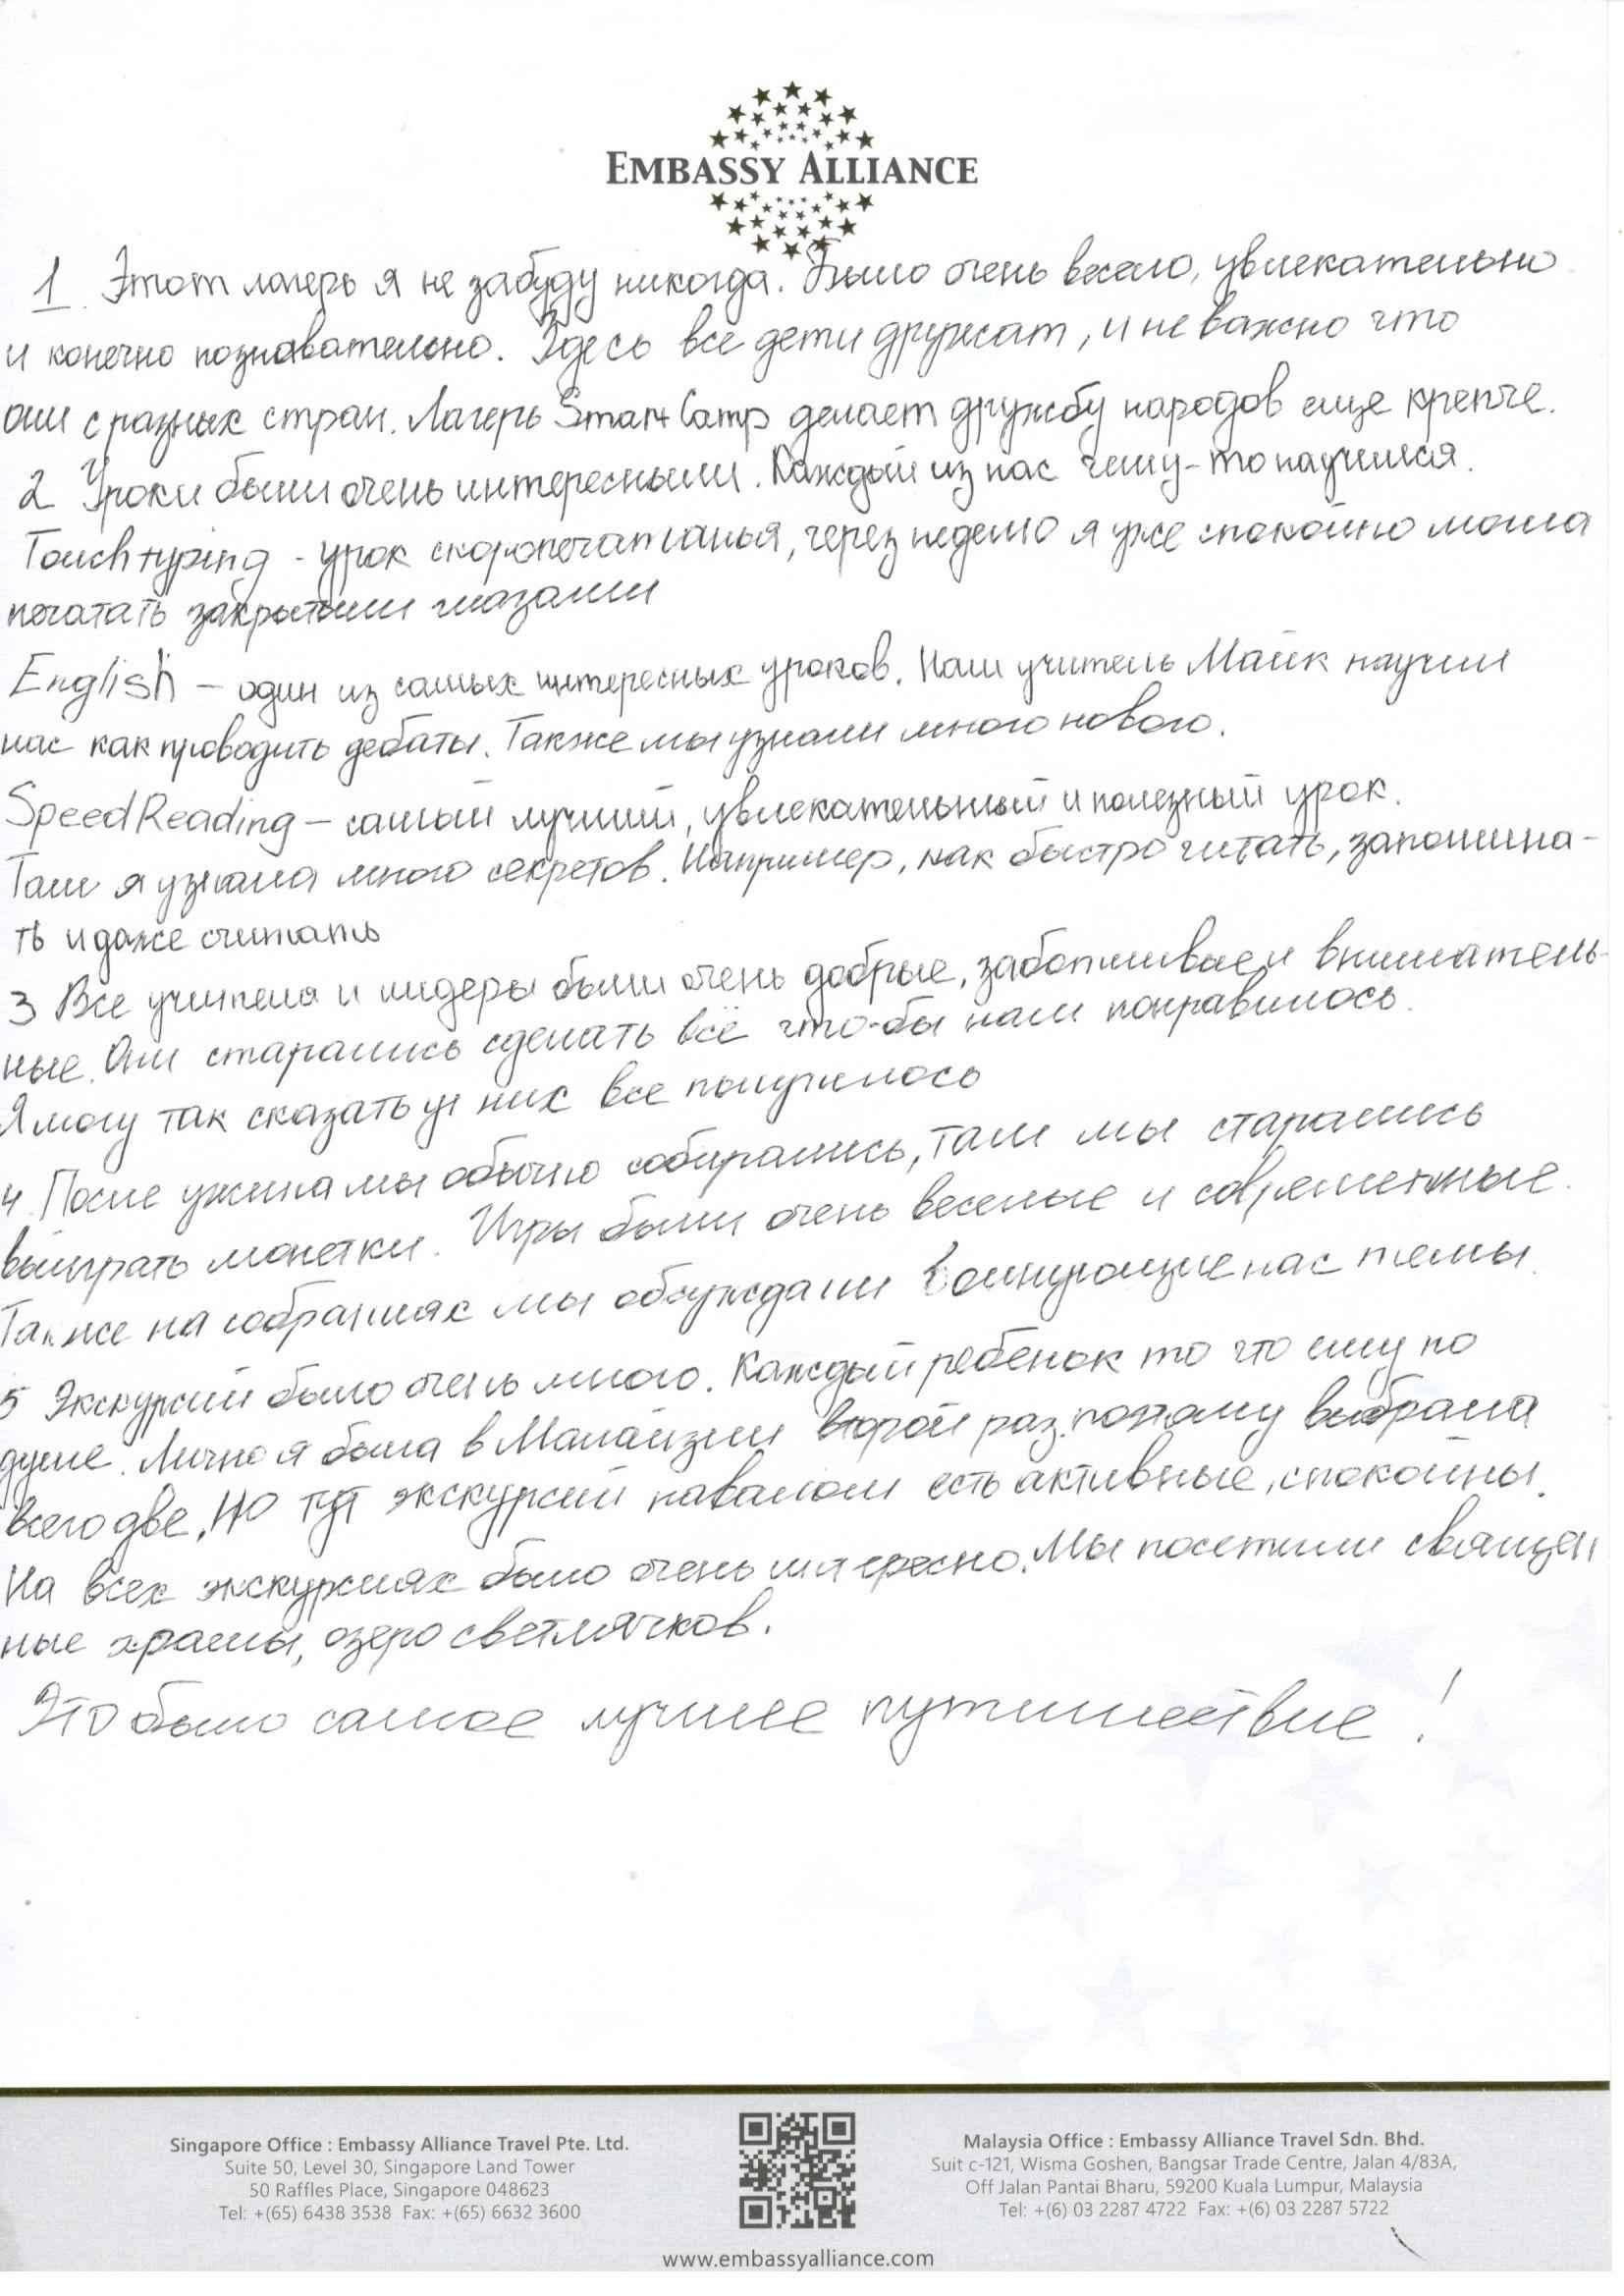 EMBASSY ALLIANCE
1. Этот лагерь я не забуду никогда. Было очень весело, увлекательно
и конечно познавательно. Здесь все дети дружат, и не важно что
они с разных стран. Лагерь Smart Camp делает дружбу народов еще крепче.
2 Уроки были очень интересными. Каждый из нас чему-то научился.
Touch typing - урок скоропечатанья, через неделю я уже спокойно могла
печатать закрытыми глазами
English – один из самых интересных уроков. Наш учитель Майк научил
нас как проводить дебаты. Также мы узнали много нового.
Speed Reading – самый лучший, увлекательный и полезный урок.
Там я узнала много секретов. Например, как быстро читать, запомина-
ть и даже считать
3 Все учителя и лидеры были очень добрые, заботливые и вниматель-
ные. Они старались сделать всё что-бы нам понравилось.
Я могу так сказать у них все получилось
4. После ужина мы обычно собирались, там мы старались
выиграть монетки. Игры были очень веселые и современные.
Также на собраниях мы обсуждали волнующие нас темы.
5 Экскурсий было очень много. Каждый ребенок то что ему по
душе. Лично я была в Малайзии второй раз. поэтому выбрала
всего две. Но тут экскурсий навалом есть активные, спокойны.
На всех экскурсиях было очень интересно. Мы посетили священ
ные храмы, озеро светлячков.
Это было самое лучшее путишествие!
Singapore Office : Embassy Alliance Travel Pte. Ltd.
Suite 50, Level 30, Singapore Land Tower
50 Raffles Place, Singapore 048623
Tel: +(65) 6438 3538 Fax: +(65) 6632 3600
Malaysia Office : Embassy Alliance Travel Sdn. Bhd.
Suit c-121, Wisma Goshen, Bangsar Trade Centre, Jalan 4/83A,
Off Jalan Pantai Bharu, 59200 Kuala Lumpur, Malaysia
Tel: +(6) 03 2287 4722 Fax: +(6) 03 2287 5722
www.embassyalliance.com